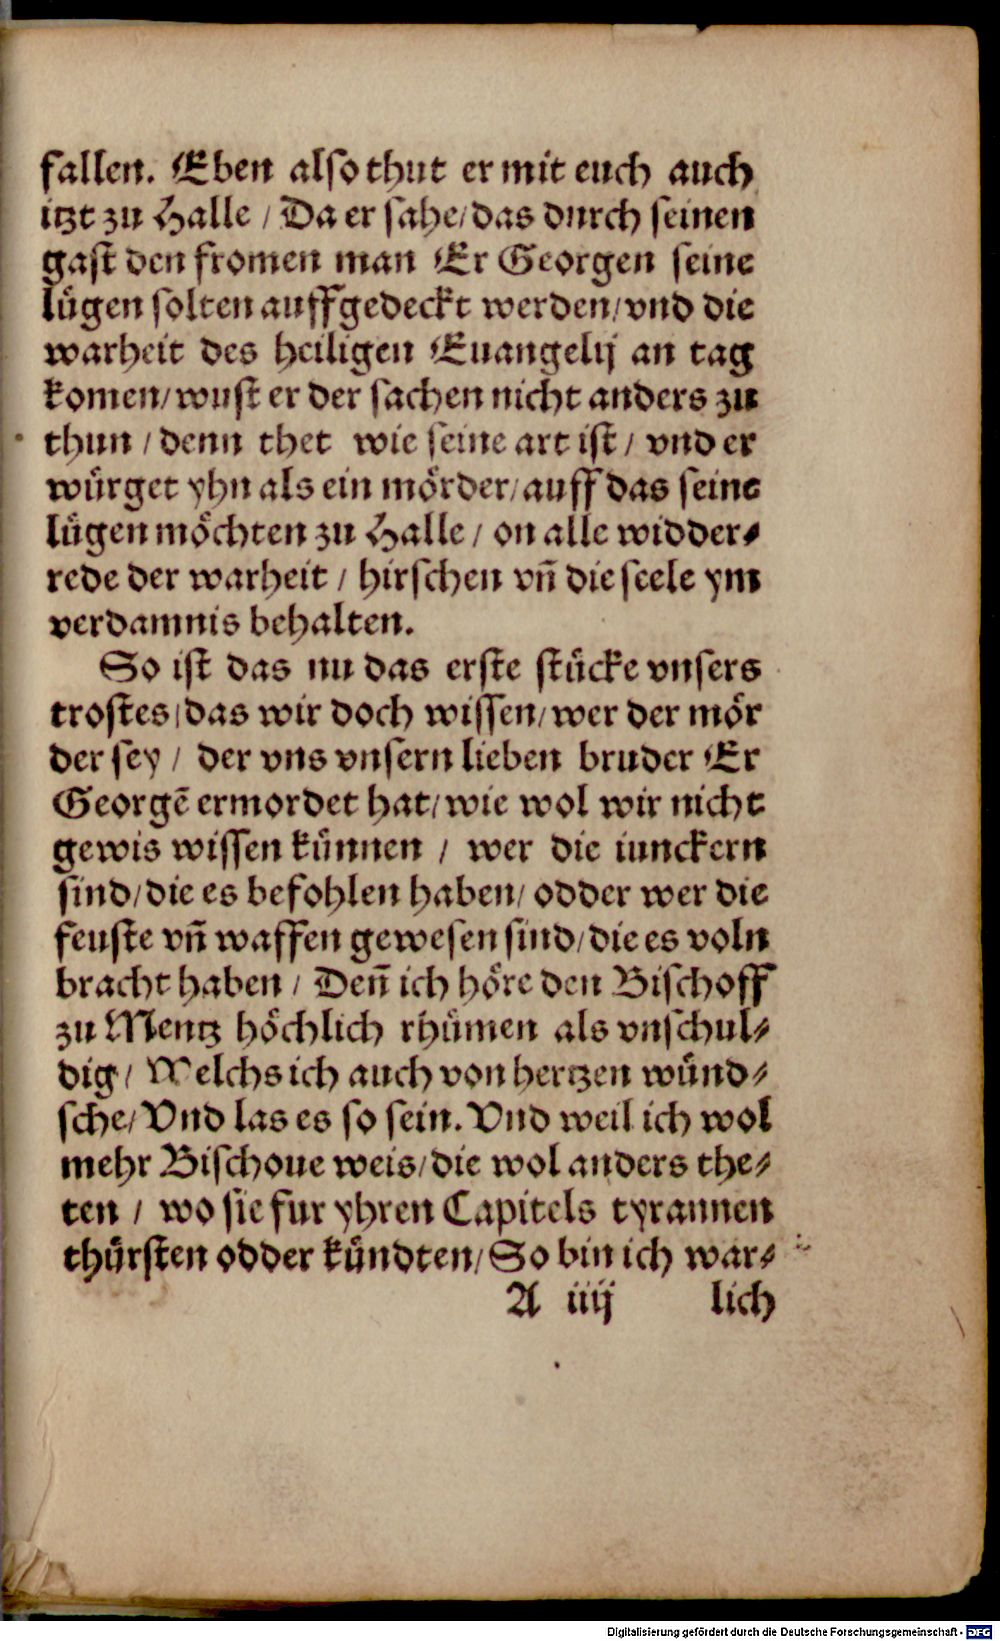 fallen. Eben also thut er mit euch auch
itzt zu Halle / Da er sahe / das durch seinen
gast den fromen man Er Georgen seine
lügen solten auffgedeckt werden / vnd die
warheit des heiligen Euangelij an tag
komen / wust er der sachen nicht anders zu
thun / denn thet wie seine art ist / vnd er
würget yhn als ein mörder / auff das seine
lügen möchten zu Halle / on alle widder⸗
rede der warheit / hirschen vn̄ die seele ym
verdamnis behalten.
So ist das nu das erste stücke vnsers
trostes / das wir doch wissen / wer der mör
der sey / der vns vnsern lieben bruder Er
Georgē ermordet hat / wie wol wir nicht
gewis wissen künnen / wer die iunckern
sind / die es befohlen haben / odder wer die
feuste vn̄ waffen gewesen sind / die es voln
bracht haben / Den̄ ich höre den Bischoff
zu Mentz höchlich rhümen als vnschul⸗
dig / Welchs ich auch von hertzen wünd⸗
sche / Vnd las es so sein. Vnd weil ich wol
mehr Bischoue weis / die wol anders the⸗
ten / wo sie fur yhren Capitels tyrannen
thürsten odder kündten / So bin ich war⸗
A iiij lich
Digitalisierung gefördert durch die Deutsche Forschungsgemeinschaft - DFG